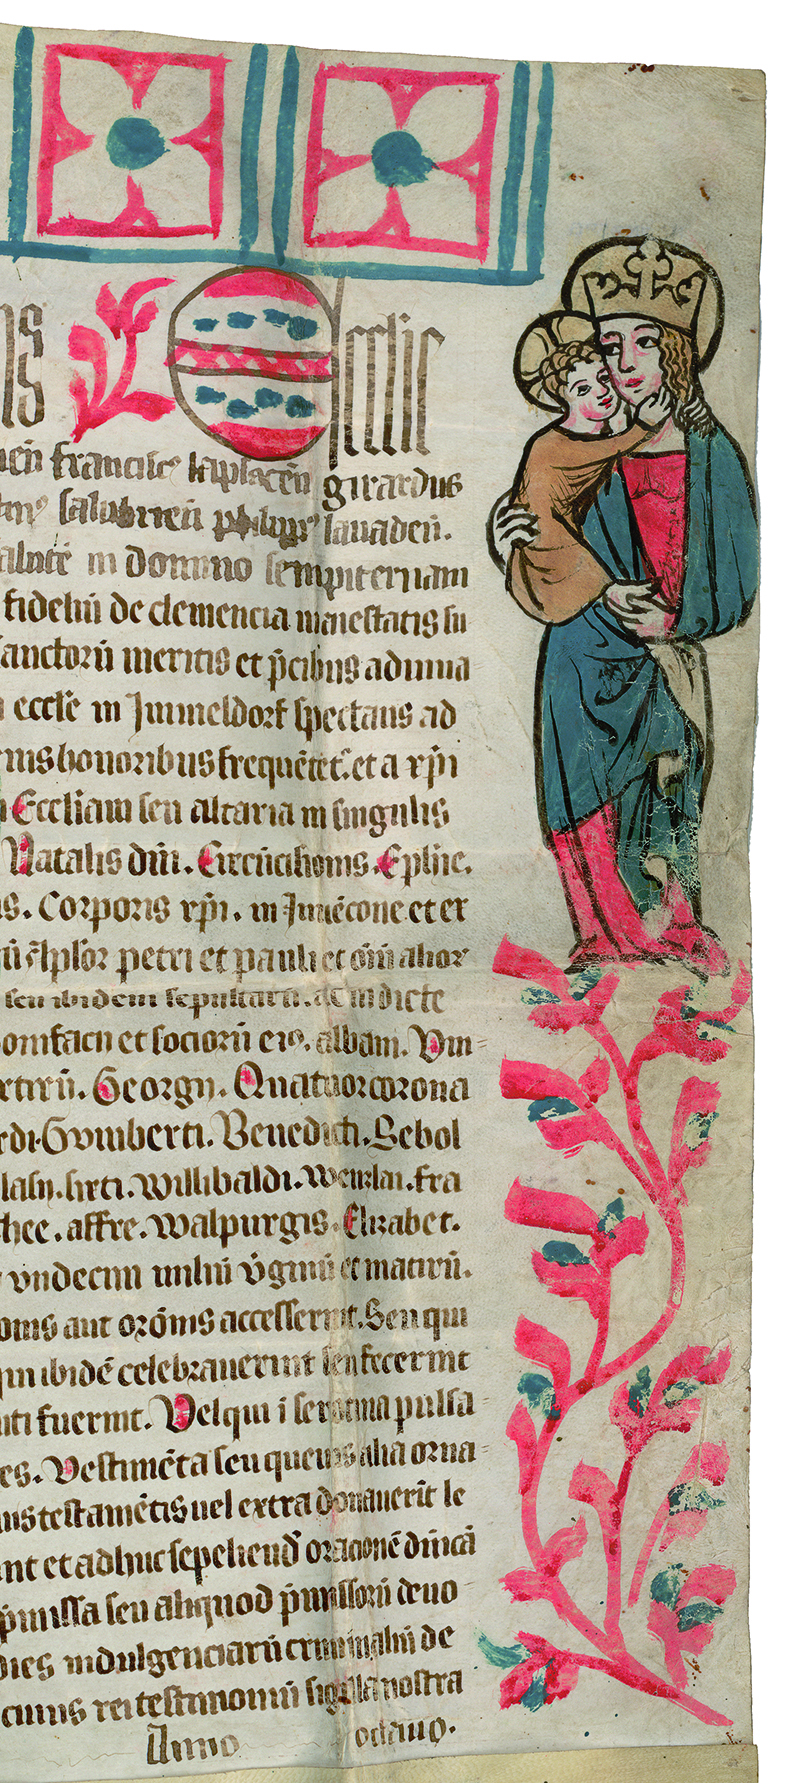 Ecclie
franciscꝰ lapsacen̄ girardus
salubrien̄ philippꝰ lauaden̄.
salutē in domino sempiternam
fideliū de clemencia maiestatis su
sanctorū meritis et p̄cibus adiuua
eccl̄e in Immeldorf spectans ad
honoribus frequētet᷒. et a xp̄i
Eccliam seu altaria in singulis
Natalis dn̄i. Circūcisionis. Ephie.
Corporis xp̄i. in Inuēcone et ex
ap̄lor petri et pauli et oīū alior
seu ibidem sepultarū. ac in dicte
bonifacii et sociorū eiꝰ. albani. Vin-
rtirū. Georgii. Quatuor corona
rdi. Gumberti. Benedicti. Sebol
lasii. sixti. Willibaldi. Wenzlai. fra
thee. affre. Walpurgis. Elizabet.
vndecim miliū v̄ginū et matirū.
onis aut orōnis accesserint. Seu qui
qui ibidē celebrauerint seu fecerint
fuerint. Vel qui i serotina pulsa-
es. Vestimēta seu queuis alia orna-
testamētis uel extra donauerīt le
int et adhuc sepeliend̄ oracionē dn̄icā
p̄missa seu aliquod p̄missorū deuo-
dies indulgenciarū criminaliū de
cuius rei testimoniū sigilla nostra
Anno octauo.